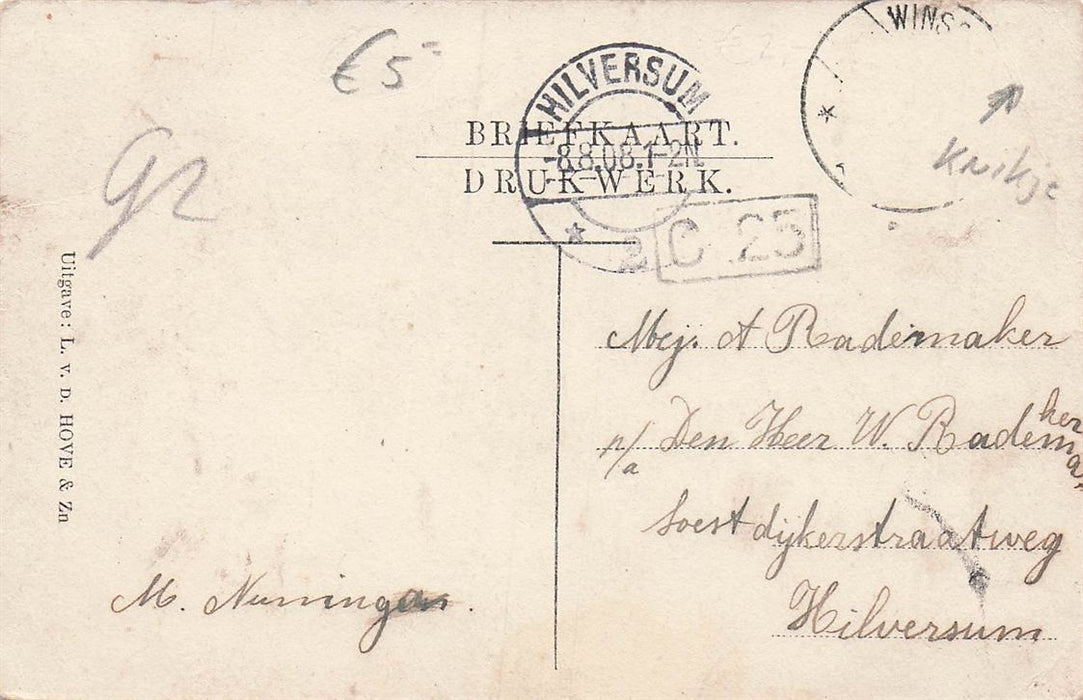 €5-
WINS
HILVERSUM
BRIEFKAART.
-8.8.08.1-2N
DRUKWERK.
2
C 25
Knikje
92
Uitgave: L. v. D. HOVE & Zn
Mej. A Rademaker
p/a Den Heer W. Rademaker
Soestdijkerstraatweg
Hilversum
M.